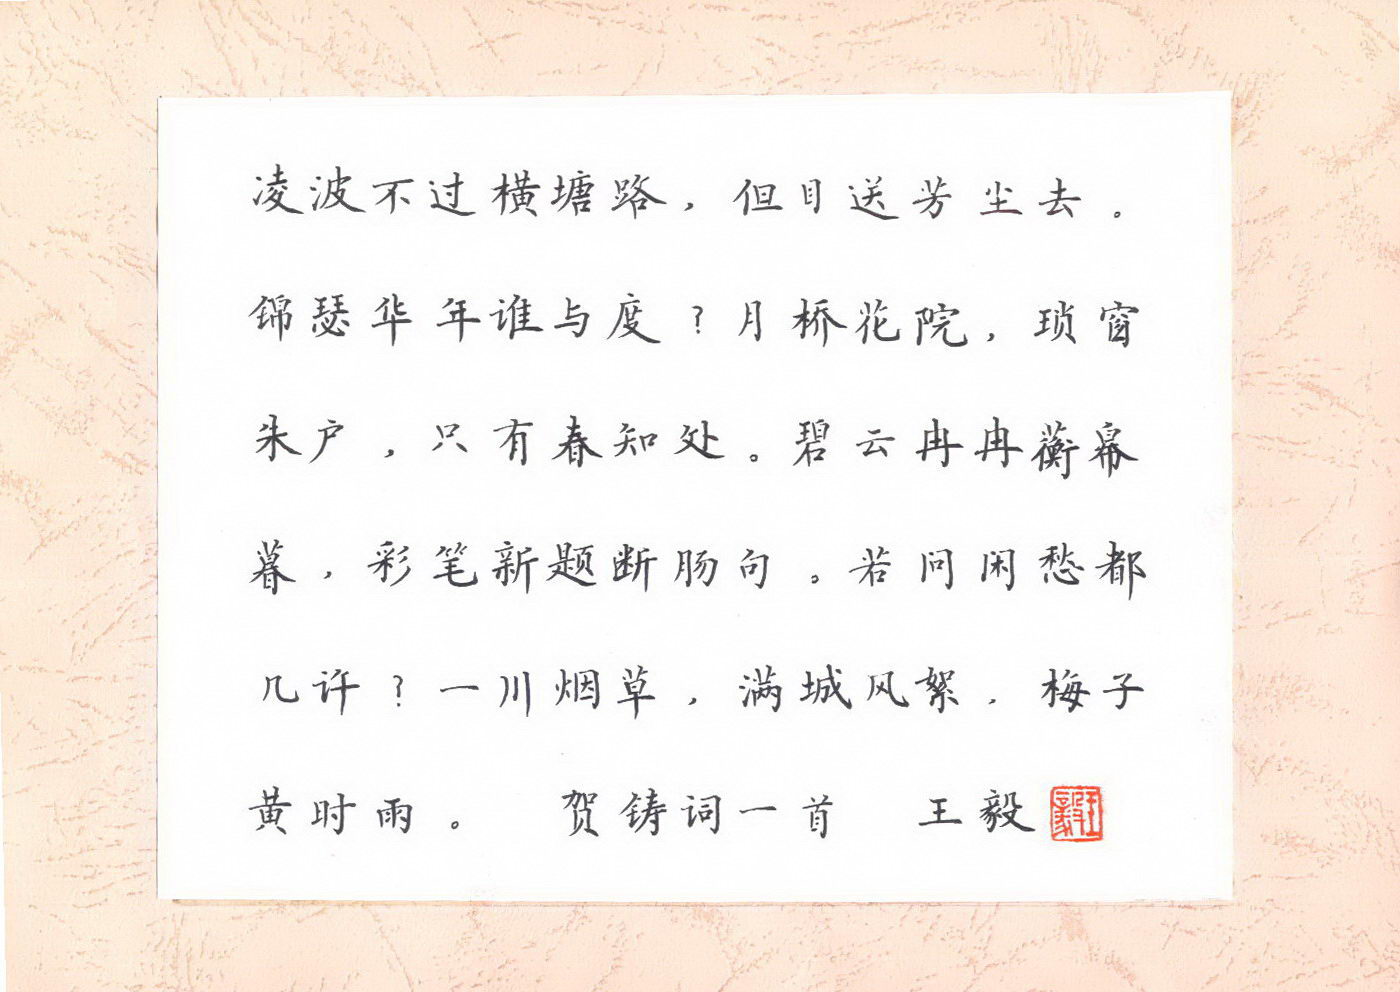 凌波不过横塘路，但目送芳尘去。
锦瑟华年谁与度？月桥花院，琐窗
朱户，只有春知处。碧云冉冉蘅幕
暮，彩笔新题断肠句。若问闲愁都
几许？一川烟草，满城风絮，梅子
黄时雨。 贺铸词一首 王毅
王毅